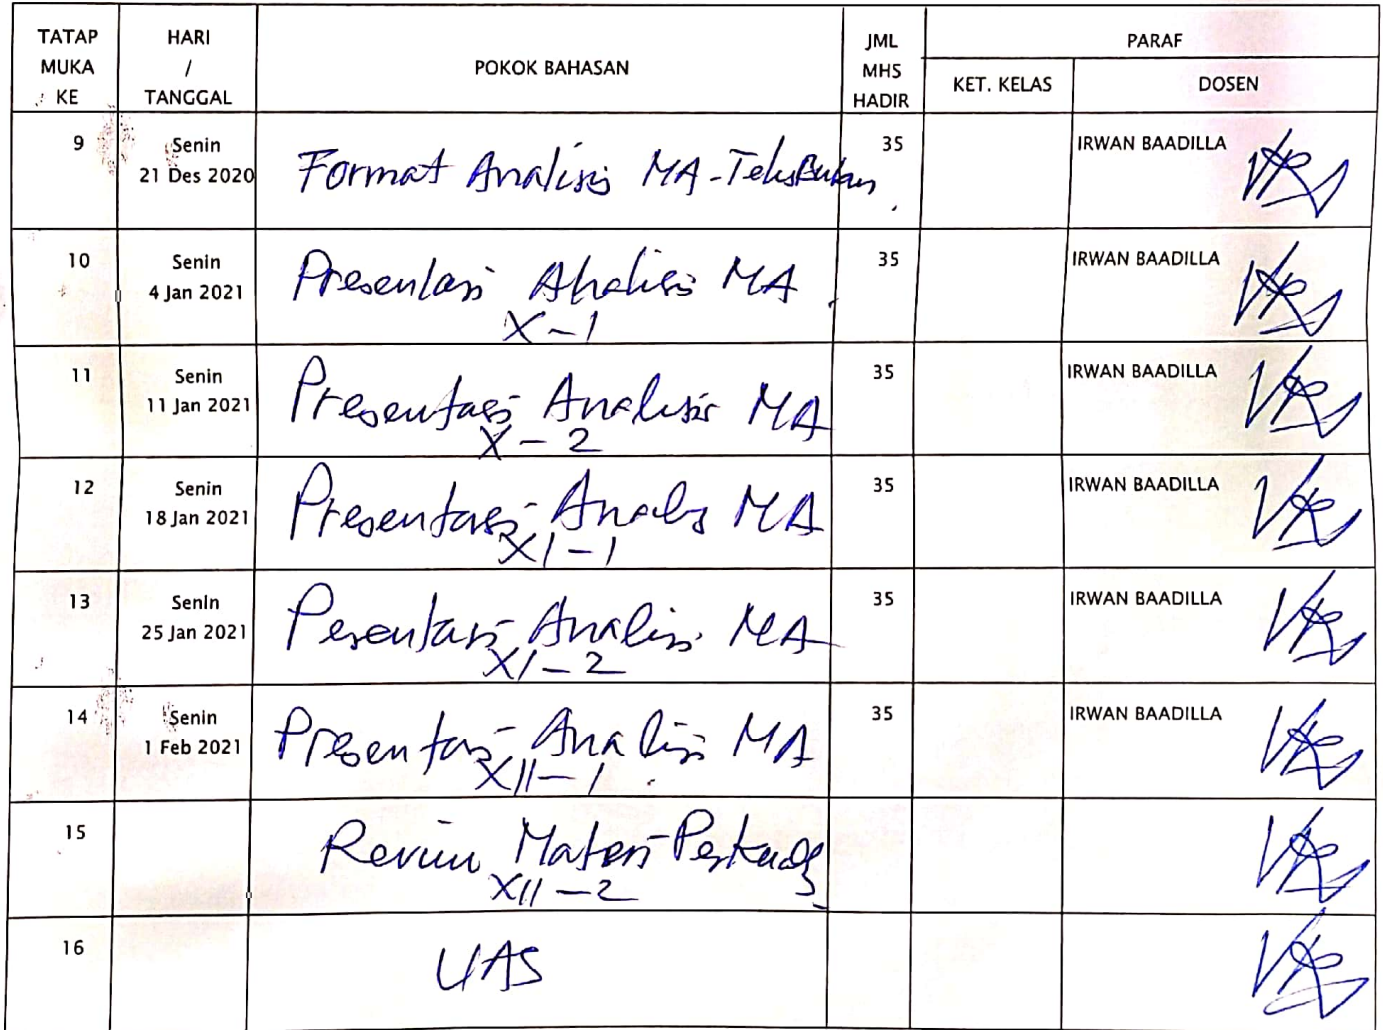 TATAP MUKA KE HARI / TANGGAL POKOK BAHASAN JML MHS HADIR PARAF
KET. KELAS DOSEN
9 Senin 21 Des 2020 Format Analisis MA - Teks 35 IRWAN BAADILLA
10 Senin 4 Jan 2021 Presentasi Analisis MA X - 1 35 IRWAN BAADILLA
11 Senin 11 Jan 2021 Presentasi Analisis MA X - 2 35 IRWAN BAADILLA
12 Senin 18 Jan 2021 Presentasi Analis MA XI - 1 35 IRWAN BAADILLA
13 Senin 25 Jan 2021 Pesentasi Analisis MA XI - 2 35 IRWAN BAADILLA
14 Senin 1 Feb 2021 Presentasi Analisis MA XII - 1 35 IRWAN BAADILLA
15 Materi XII - 2
16 UAS